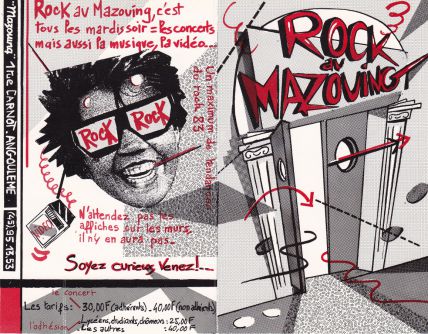 "Mazouing" 1 rue CARNOT. ANGOULEME. (45).95.13.53
ROCK au Mazouing, c'est
tous les mardis soir = les concerts
mais aussi la musique, la vidéo...
ROCK ROCK
Un maximum de
du rock 83
N'attendez pas les
affiches sur les murs
il n'y en aura pas.
Soyez curieux Venez!...
le concert
Les tarifs: 30,00F (adhérents) - 40,00F (non adhérents)
l'adhésion
Lycéens, étudiants, chômeurs: 25,00F
Les autres : 40,00F
ROCK
au
MAZOUING